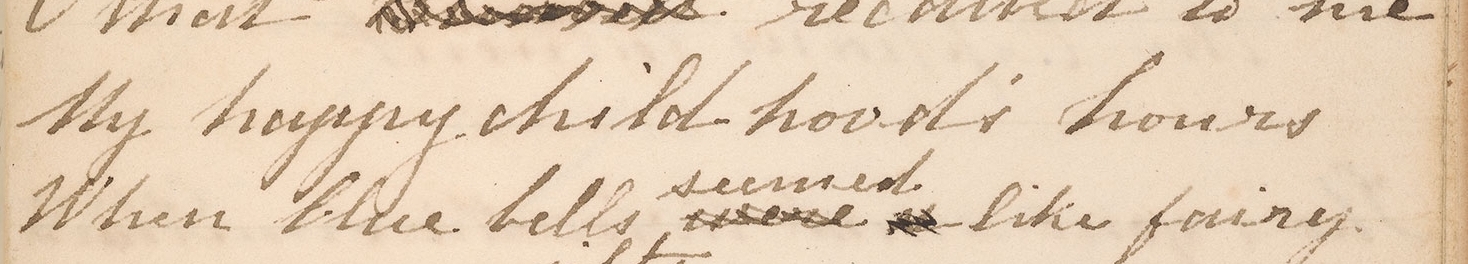 that recalled to me
My happy childhood's hours
seemed
When blue bells were like fairy